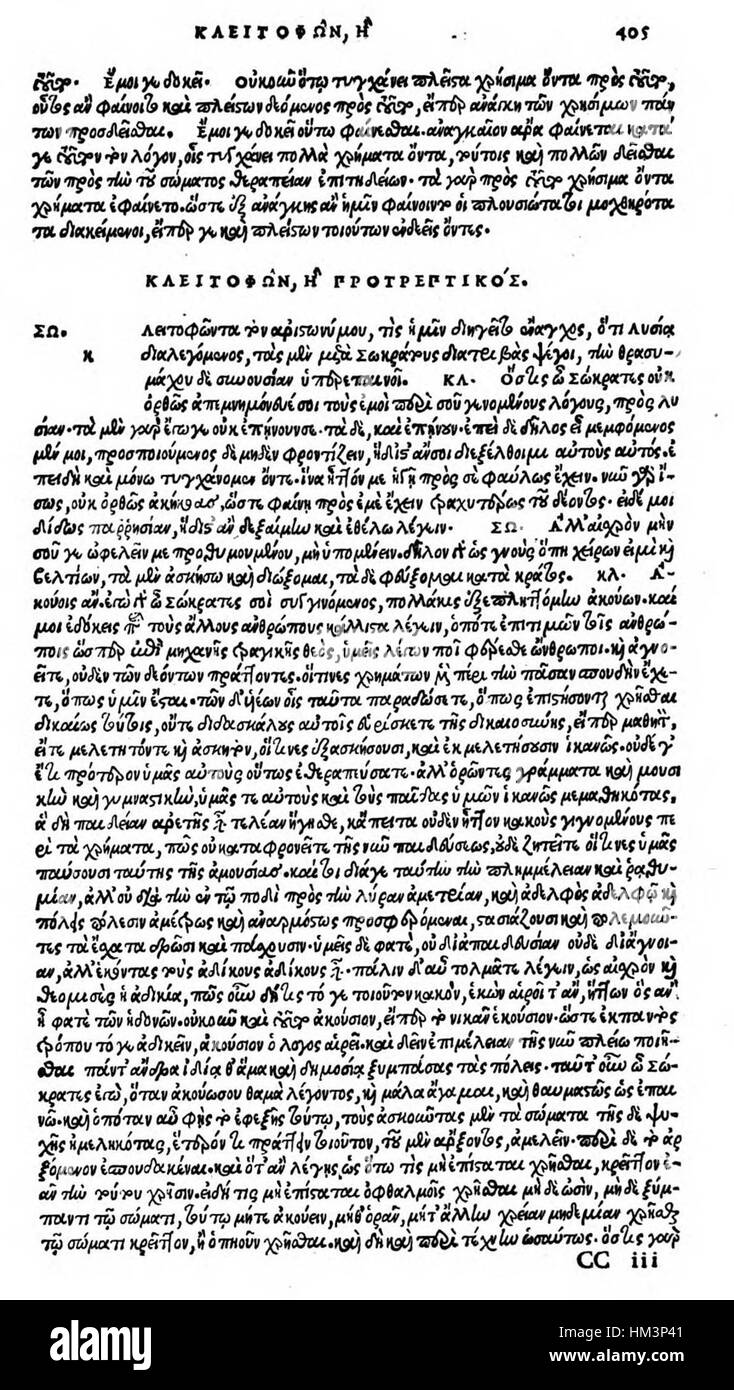 ΚΛΕΙΤΟΦΩΝ, Ἢ 405
ἐκεῖνο. Ἔμοιγε δοκεῖ. Οὐκοῦν ὅτῳ τυγχάνει πλεῖστα χρήσιμα ὄντα πρὸς ἐκεῖνο,
οὗτος ἂν φαίνοιτο καὶ πλείστων δεόμενος πρὸς ἐκεῖνο, εἴπερ ἀνάγκη τῶν χρησίμων παν
των προσδεῖσθαι. Ἔμοιγε δοκεῖ οὕτω φαίνεσθαι. ἀναγκαῖον ἄρα φαίνεται κατά
γε ἐκεῖνον τὸν λόγον, οἷς τυγχάνει πολλὰ χρήματα ὄντα, τούτοις καὶ πολλῶν δεῖσθαι
τῶν πρὸς τὴν τοῦ σώματος θεραπείαν ἐπιτηδείων. τὰ γὰρ πρὸς ἐκεῖνο χρήσιμα ὄντα
χρήματα ἐφαίνετο. ὥστε ἐξ ἀνάγκης ἂν ἡμῖν φαίνοιντο οἱ πλουσιώτατοι μοχθηρότα
τα διακείμενοι, εἴπερ γε καὶ πλείστων τοιούτων ἐνδεεῖς ὄντες.
ΚΛΕΙΤΟΦΩΝ, Ἢ ΠΡΟΤΡΕΠΤΙΚΟΣ.
ΣΩ. λειτοφῶντα τὸν ἀριστωνύμου, τὶς ἡμῖν διηγεῖτο ἔναγχος, ὅτι Λυσίᾳ
κ διαλεγόμενος, τὰς μὲν μετὰ Σωκράτους διατριβὰς ψέγοι, τὴν θρασυ-
μάχου δὲ συνουσίαν ὑπερεπαινοῖ. ΚΛ. Ὅστις ὦ Σώκρατες οὐκ
ὀρθῶς ἀπεμνημόνευέ σοι τοὺς ἐμοὶ περὶ σοῦ γενομένους λόγους, πρὸς λυ
σίαν. τὰ μὲν γὰρ ἔγωγε οὐκ ἐπῄνουν σε. τὰ δὲ, καὶ ἐπῄνουν. ἐπεὶ δὲ δῆλος εἶ μεμφόμενος
μέν μοι, προσποιούμενος δὲ μηδὲν φροντίζειν, ἥδιστ' ἄν σοι διεξέλθοιμι αὐτοὺς αὐτός. ἐ
πειδὴ καὶ μόνω τυγχάνομεν ὄντε. ἵνα ἧττόν με ἡγῇ πρὸς σὲ φαύλως ἔχειν. νῦν γὰρ ἴ-
σως, οὐκ ὀρθῶς ἀκήκοας, ὥστε φαίνῃ πρὸς ἐμὲ ἔχειν τραχυτέρως τοῦ δέοντος. εἰ δέ μοι
δίδως παρρησίαν, ἥδιστ' ἂν δεξαίμην καὶ ἐθέλω λέγειν. ΣΩ. Ἀλλ' αἰσχρὸν μὴν
σοῦ γε ὠφελεῖν με προθυμουμένου, μὴ ὑπομένειν. δῆλον γὰρ ὡς γνοὺς ὅπῃ χείρων εἰμὶ κὴ
βελτίων, τὰ μὲν ἀσκήσω καὶ διώξομαι, τὰ δὲ φεύξομαι κατὰ κράτος. ΚΛ. Ἀ-
κούοις ἄν. ἐγὼ γὰρ ὦ Σώκρατες σοὶ συγγινόμενος, πολλάκις ἐξεπληττόμην ἀκούων. καί
μοι ἐδόκεις παρὰ τοὺς ἄλλους ἀνθρώπους κάλλιστα λέγειν, ὁπότε ἐπιτιμῶν τοῖς ἀνθρώ-
ποις ὥσπερ ἐπὶ μηχανῆς τραγικῆς θεὸς, ὑμεῖς λέγων ποῖ φέρεσθε ὤνθρωποι. κὴ ἀγνο-
εῖτε, οὐδὲν τῶν δεόντων πράττοντες. οἵτινες χρημάτων μὲν πέρι τὴν πᾶσαν σπουδὴν ἔχε-
τε, ὅπως ὑμῖν ἔσται. τῶν δ' υἱέων οἷς ταῦτα παραδώσετε, ὅπως ἐπιστήσονται χρῆσθαι
δικαίως τούτοις, οὔτε διδασκάλους αὐτοῖς εὑρίσκετε τῆς δικαιοσύνης, εἴπερ μαθητόν,
εἴτε μελετητόν τε κὴ ἀσκητόν, οἵτινες ἐξασκήσουσι, καὶ ἐκμελετήσουσιν ἱκανῶς. οὐδέ γ'
ἔτι πρότερον ὑμᾶς αὐτοὺς οὕτως ἐθεραπεύσατε. ἀλλ' ὁρῶντες γράμματα καὶ μουσι
κὴν καὶ γυμναστικὴν, ὑμᾶς τε αὐτοὺς καὶ τοὺς παῖδας ὑμῶν ἱκανῶς μεμαθηκότας.
ἃ δὴ παιδείαν ἀρετῆς εἶναι τελέαν ἥγησθε, κἄπειτα οὐδὲν ἧττον κακοὺς γιγνομένους πε
ρὶ τὰ χρήματα, πῶς οὐ καταφρονεῖτε τῆς νῦν παιδεύσεως, οὐδὲ ζητεῖτε οἵτινες ὑμᾶς
παύσουσι ταύτης τῆς ἀμουσίας. καίτοι διάγε ταύτην τὴν πλημμέλειαν καὶ ῥᾳθυ-
μίαν, ἀλλ' οὐ διὰ τὴν ἐν τῷ ποδὶ πρὸς τὴν λύραν ἀμετρίαν, καὶ ἀδελφὸς ἀδελφῷ κὴ
πόλεις πόλεσιν ἀμέτρως καὶ ἀναρμόστως προσφερόμεναι, στασιάζουσι καὶ πολεμοῦν-
τες τὰ ἔσχατα δρῶσι καὶ πάσχουσιν. ὑμεῖς δὲ φατὲ, οὐ δι' ἀπαιδευσίαν οὐδὲ δι' ἄγνοι-
αν, ἀλλ' ἑκόντας τοὺς ἀδίκους ἀδίκους εἶναι. πάλιν δ' αὖ τολμᾶτε λέγειν, ὡς αἰσχρὸν κὴ
θεομισὲς ἡ ἀδικία, πῶς οὖν δή τις τό γε τοιοῦτον κακὸν, ἑκὼν αἱροῖτ' ἄν, ἥττων ὃς ἂν
ᾖ φατὲ τῶν ἡδονῶν. οὐκοῦν καὶ ἐκεῖνο ἀκούσιον, εἴπερ τὸ νικᾶν ἑκούσιον. ὥστε ἐκ παντὸς
τρόπου τό γε ἀδικεῖν, ἀκούσιον ὁ λόγος αἱρεῖ. καὶ δεῖν ἐπιμέλειαν τῆς νῦν πλείω ποιεῖ-
σθαι πάντ' ἄνδρα ἰδίᾳ θ' ἅμα καὶ δημοσίᾳ ξυμπάσας τὰς πόλεις. ταῦτ' οὖν ὦ Σώ-
κρατες ἐγὼ, ὅταν ἀκούσω σου θαμὰ λέγοντος, κὴ μάλα ἄγαμαι, καὶ θαυμαστῶς ὡς ἐπαι
νῶ. καὶ ὁπόταν αὖ φῇς τὸ ἐφεξῆς τούτῳ, τοὺς ἀσκοῦντας μὲν τὰ σώματα τῆς δὲ ψυ-
χῆς ἠμεληκότας, ἕτερόν τι πράττειν τοιοῦτον, τοῦ μὲν ἄρξοντος, ἀμελεῖν. περὶ δὲ τὸ ἀρ
ξόμενον ἐσπουδακέναι. καὶ ὅτ' ἂν λέγῃς ὡς ὅτῳ τὶς μὴ ἐπίσταται χρῆσθαι, κρεῖττον ἐ-
ᾶν τὴν τούτου χρῆσιν. εἰ δή τις μὴ ἐπίσταται ὀφθαλμοῖς χρῆσθαι μηδὲ ὠσὶν, μηδὲ ξύμ-
παντι τῷ σώματι, τούτῳ μήτε ἀκούειν, μήθ' ὁρᾶν, μήτ' ἄλλην χρείαν μηδεμίαν χρῆσθαι
τῷ σώματι κρεῖττον, ἢ ὁπῃοῦν χρῆσθαι. καὶ δὴ καὶ περὶ τέχνην ὡσαύτως. ὅστις γὰρ
CC iii
alamy
Image ID: HM3P41
www.alamy.com